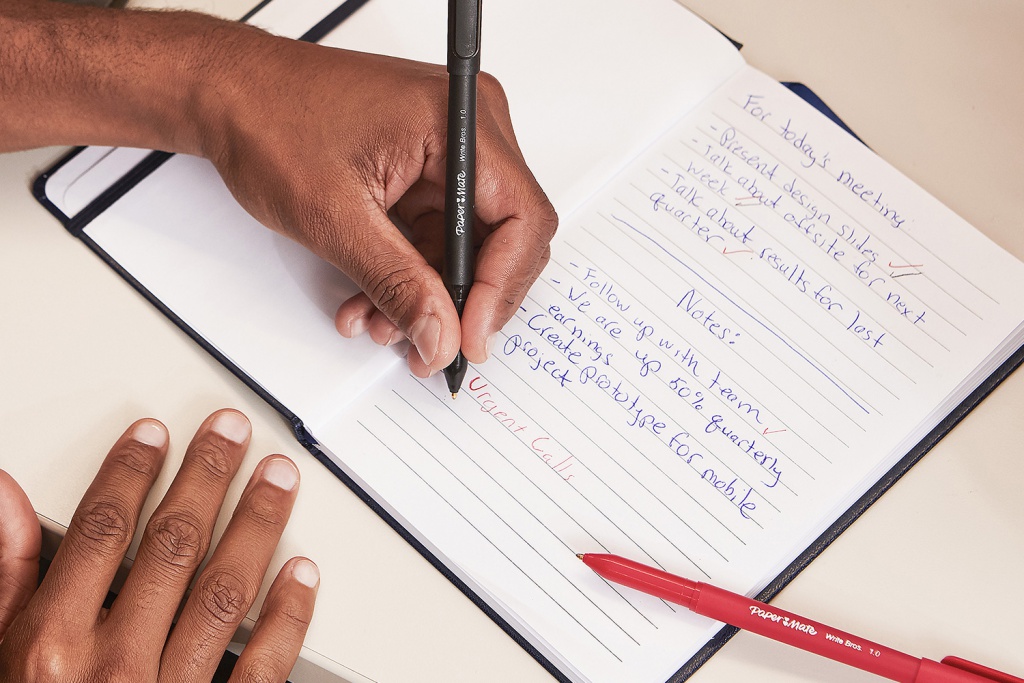 For today's meeting:
- Present design slides
- Talk about offsite for next
week
- Talk about results for last
quarter
Notes:
- Follow up with team
- We are up 50% quarterly
earnings
- Create prototype for mobile
project
Urgent Calls
Paper Mate Write Bros. 1.0
Paper Mate Write Bros. 1.0